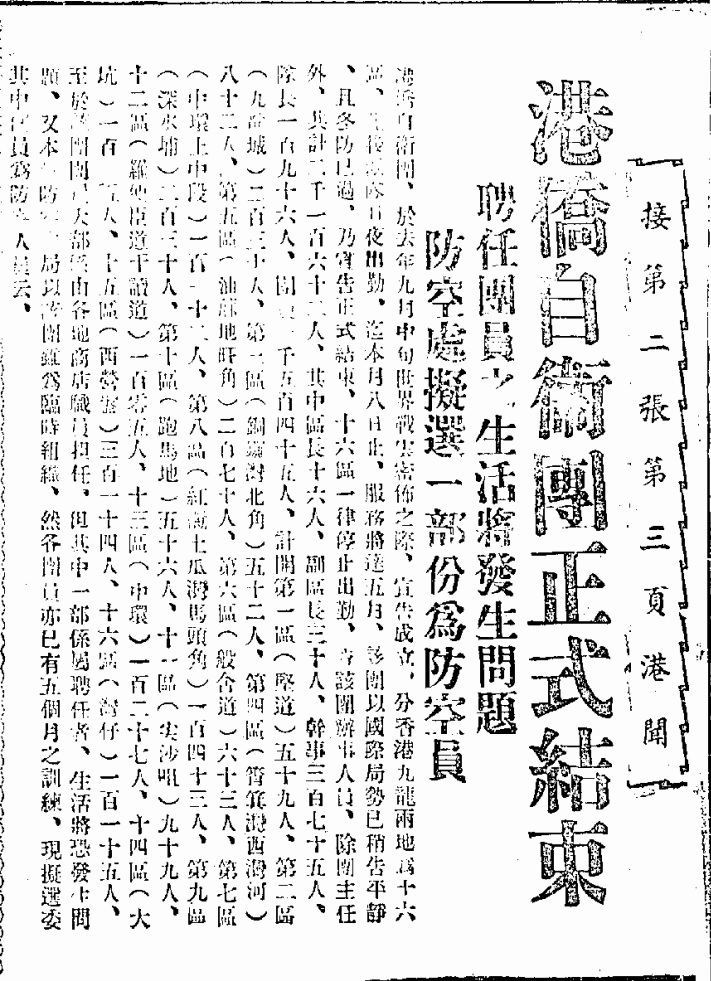 接第二張第三頁港聞
港僑自衛團正式結束
聘任團員之生活將發生問題
防空處擬選一部份爲防空員
港僑自衛團、於去年九月中旬世界戰雲密佈之際、宣告成立、分香港九龍兩地爲十六
區、日夜出勤、迄本月八日止、服務將達五月、該團以國際局勢已稍告平靜
、且冬防已過、乃宣告正式結束、十六區一律停止出勤、查該團辦事人員、除團主任
外、共計二千一百六十二人、其中區長十六人、副區長三十人、幹事三百七十五人、
隊長一百九十六人、團員一千五百四十五人、計開第一區（堅道）五十九人、第二區
（九龍城）二百三十八人、第三區（銅鑼灣北角）五十二人、第四區（筲箕灣西灣河）
八十二人、第五區（油麻地旺角）二百七十人、第六區（般含道）六十三人、第七區
（中環上中段）一百一十二人、第八區（紅磡土瓜灣馬頭角）一百四十三人、第九區
（深水埔）二百三十人、第十區（跑馬地）五十六人、十一區（尖沙咀）九十九人、
十二區（羅便臣道干讀道）一百零五人、十三區（中環）一百二十七人、十四區（大
坑）一百人、十五區（西營盤）三百一十四人、十六區（灣仔）一百一十五人、
至於該團團員大部係由各地商店職員担任、但其中一部係屬聘任者、生活將恐發生問
題、又本港防空局以該團雖爲臨時組織、然各團員亦已有五個月之訓練、現擬選委
其中團員爲防空人員云、